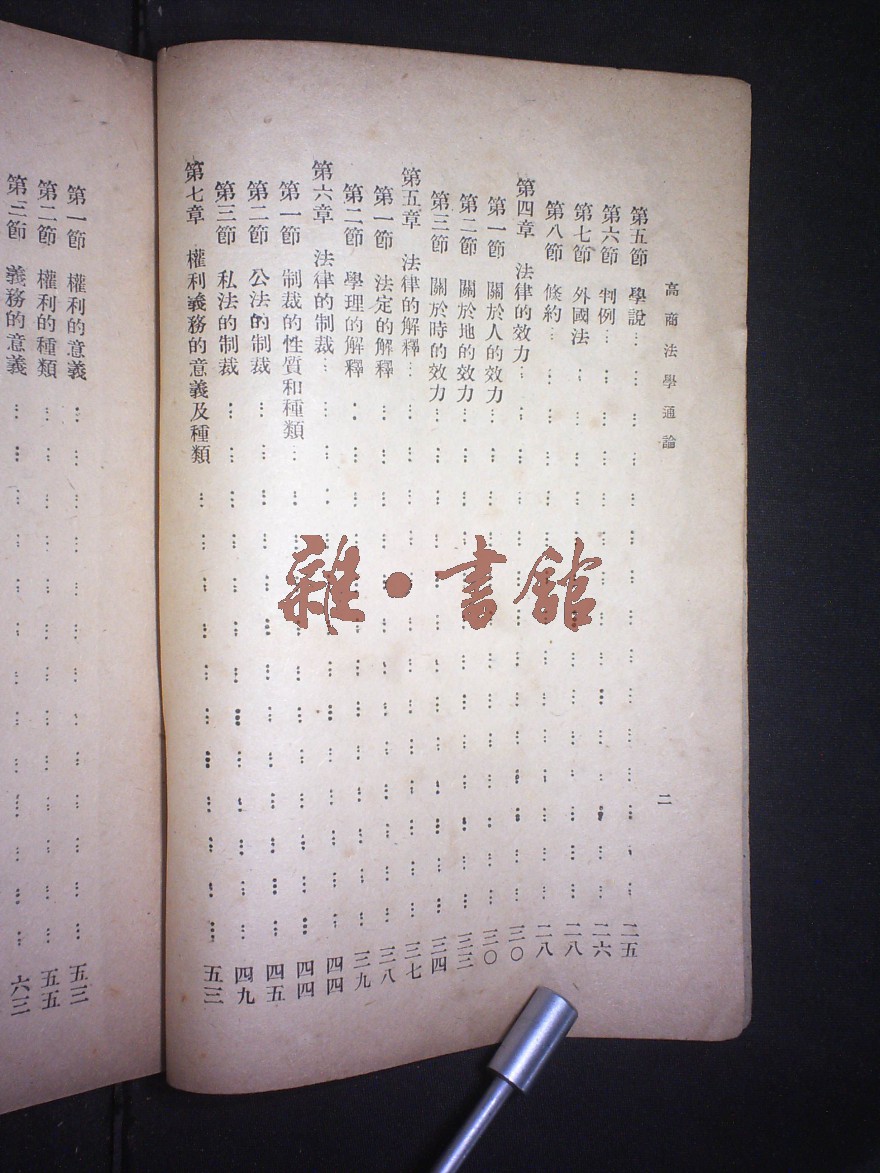 高商法學通論
二
第五節 學說 二五
第六節 判例 二六
第七節 外國法 二八
第八節 條約 二八
第四章 法律的效力 三〇
第一節 關於人的效力 三〇
第二節 關於地的效力 三三
第三節 關於時的效力 三四
第五章 法律的解釋 三七
第一節 法定的解釋 三八
第二節 學理的解釋 三九
第六章 法律的制裁 四四
第一節 制裁的性質和種類 四四
第二節 公法的制裁 四五
第三節 私法的制裁 四九
第七章 權利義務的意義及種類 五三
第一節 權利的意義 五三
第二節 權利的種類 五五
第三節 義務的意義 六三
雜·書館